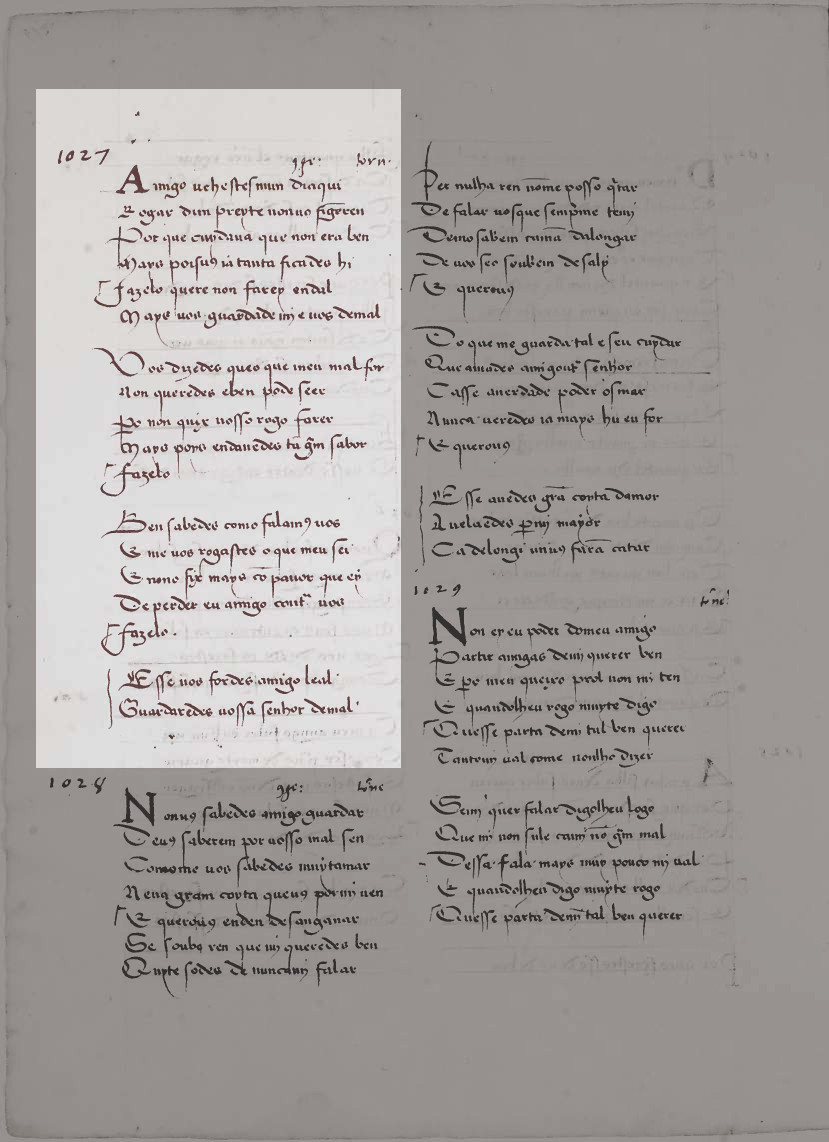 1027
9gr: torn.
Amigo ueheſtesmun diaqui
Rogar dun preyte nonuo figeren
Por que cuydaua que non era ben
Mays poisuꝰ ia tanta ficades hi
Fazelo quere non farey endal
Mays uos guardade mi e uos demal
Vos dizedes queo que meu mal for
Non queredes eben pode seer
Pero non quix uosso rogo fazer
Mays poys endauedes tā gm̄ sabor
Fazelo
Ben sabedes como falamꝰ uos
E me uos rogastes o que meu sei
E nono fix mays cō pauor que ey
De perder eu amigo contra uos
Fazelo.
E sse uos fordes amigo leal
Guardaredes uossa senhor demal
1028
9gr: torne
Nonuꝰ sabedes amigo guardar
Deuꝰ saberem por uosso mal sen
Comome uos sabedes muytamar
Nena gram coyta queuꝰ pormi uen
E querouꝰ enden desanganar
Se souber ren que mi queredes ben
Quyte sodes de nuncami falar
Per nulha ren nōme posso q̄tar
De falar uosque sempr̄me temi
Demo sabein camā dalongar
De uos seo souberin desaly
E querouꝰ
Do que me guarda tal e seu cuydar
Que amades amigoutr̄ senhor
Ca sse auerdade poder osmar
Nunca ueredes ia mays hu eu for
E querouꝰ
E sse auedes grā coyta damor
Auelaedes per mī mayor
Ca delongi uiuꝰ farā catar
1029
tōne
Non ey eu poder domeu amigo
Partir amigas demi querer ben
E pero meu queixo prol non mi ten
E quandolheu rogo muyte digo
Quesse parta demi tal ben querer
Tantomi ual come nonlho dizer
Semi quer falar digolheu logo
Que mi non fale cami uē gm̄ mal
Dessa fala mays muy pouco mi ual
E quandolheu digo muyte rogo
Quesse parta demi tal ben querer